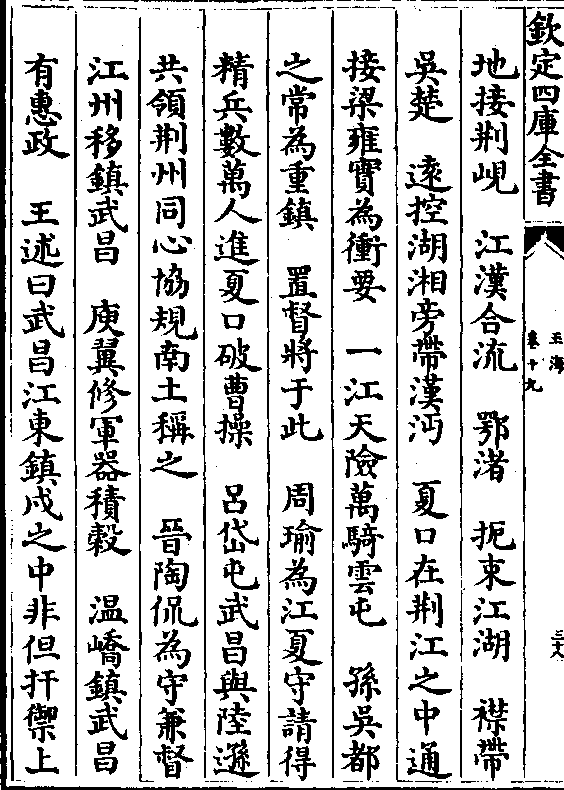 欽定四庫全書
玉海
卷十九
三六
地接荆峴　江漢合流　鄂渚　扼束江湖　襟帶
吳楚　遠控湖湘旁帶漢沔　夏口在荆江之中通
接梁雍實為衝要　一江天險萬騎雲屯　孫吳都
之常為重鎮　置督將于此　周瑜為江夏守請得
精兵數萬人進夏口破曹操　呂岱屯武昌與陸遜
共領荆州同心協規南土稱之　晉陶侃為守兼督
江州移鎮武昌　庾翼修軍器積穀　温嶠鎮武昌
有惠政　王述曰武昌江東鎮戍之中非但扞禦上